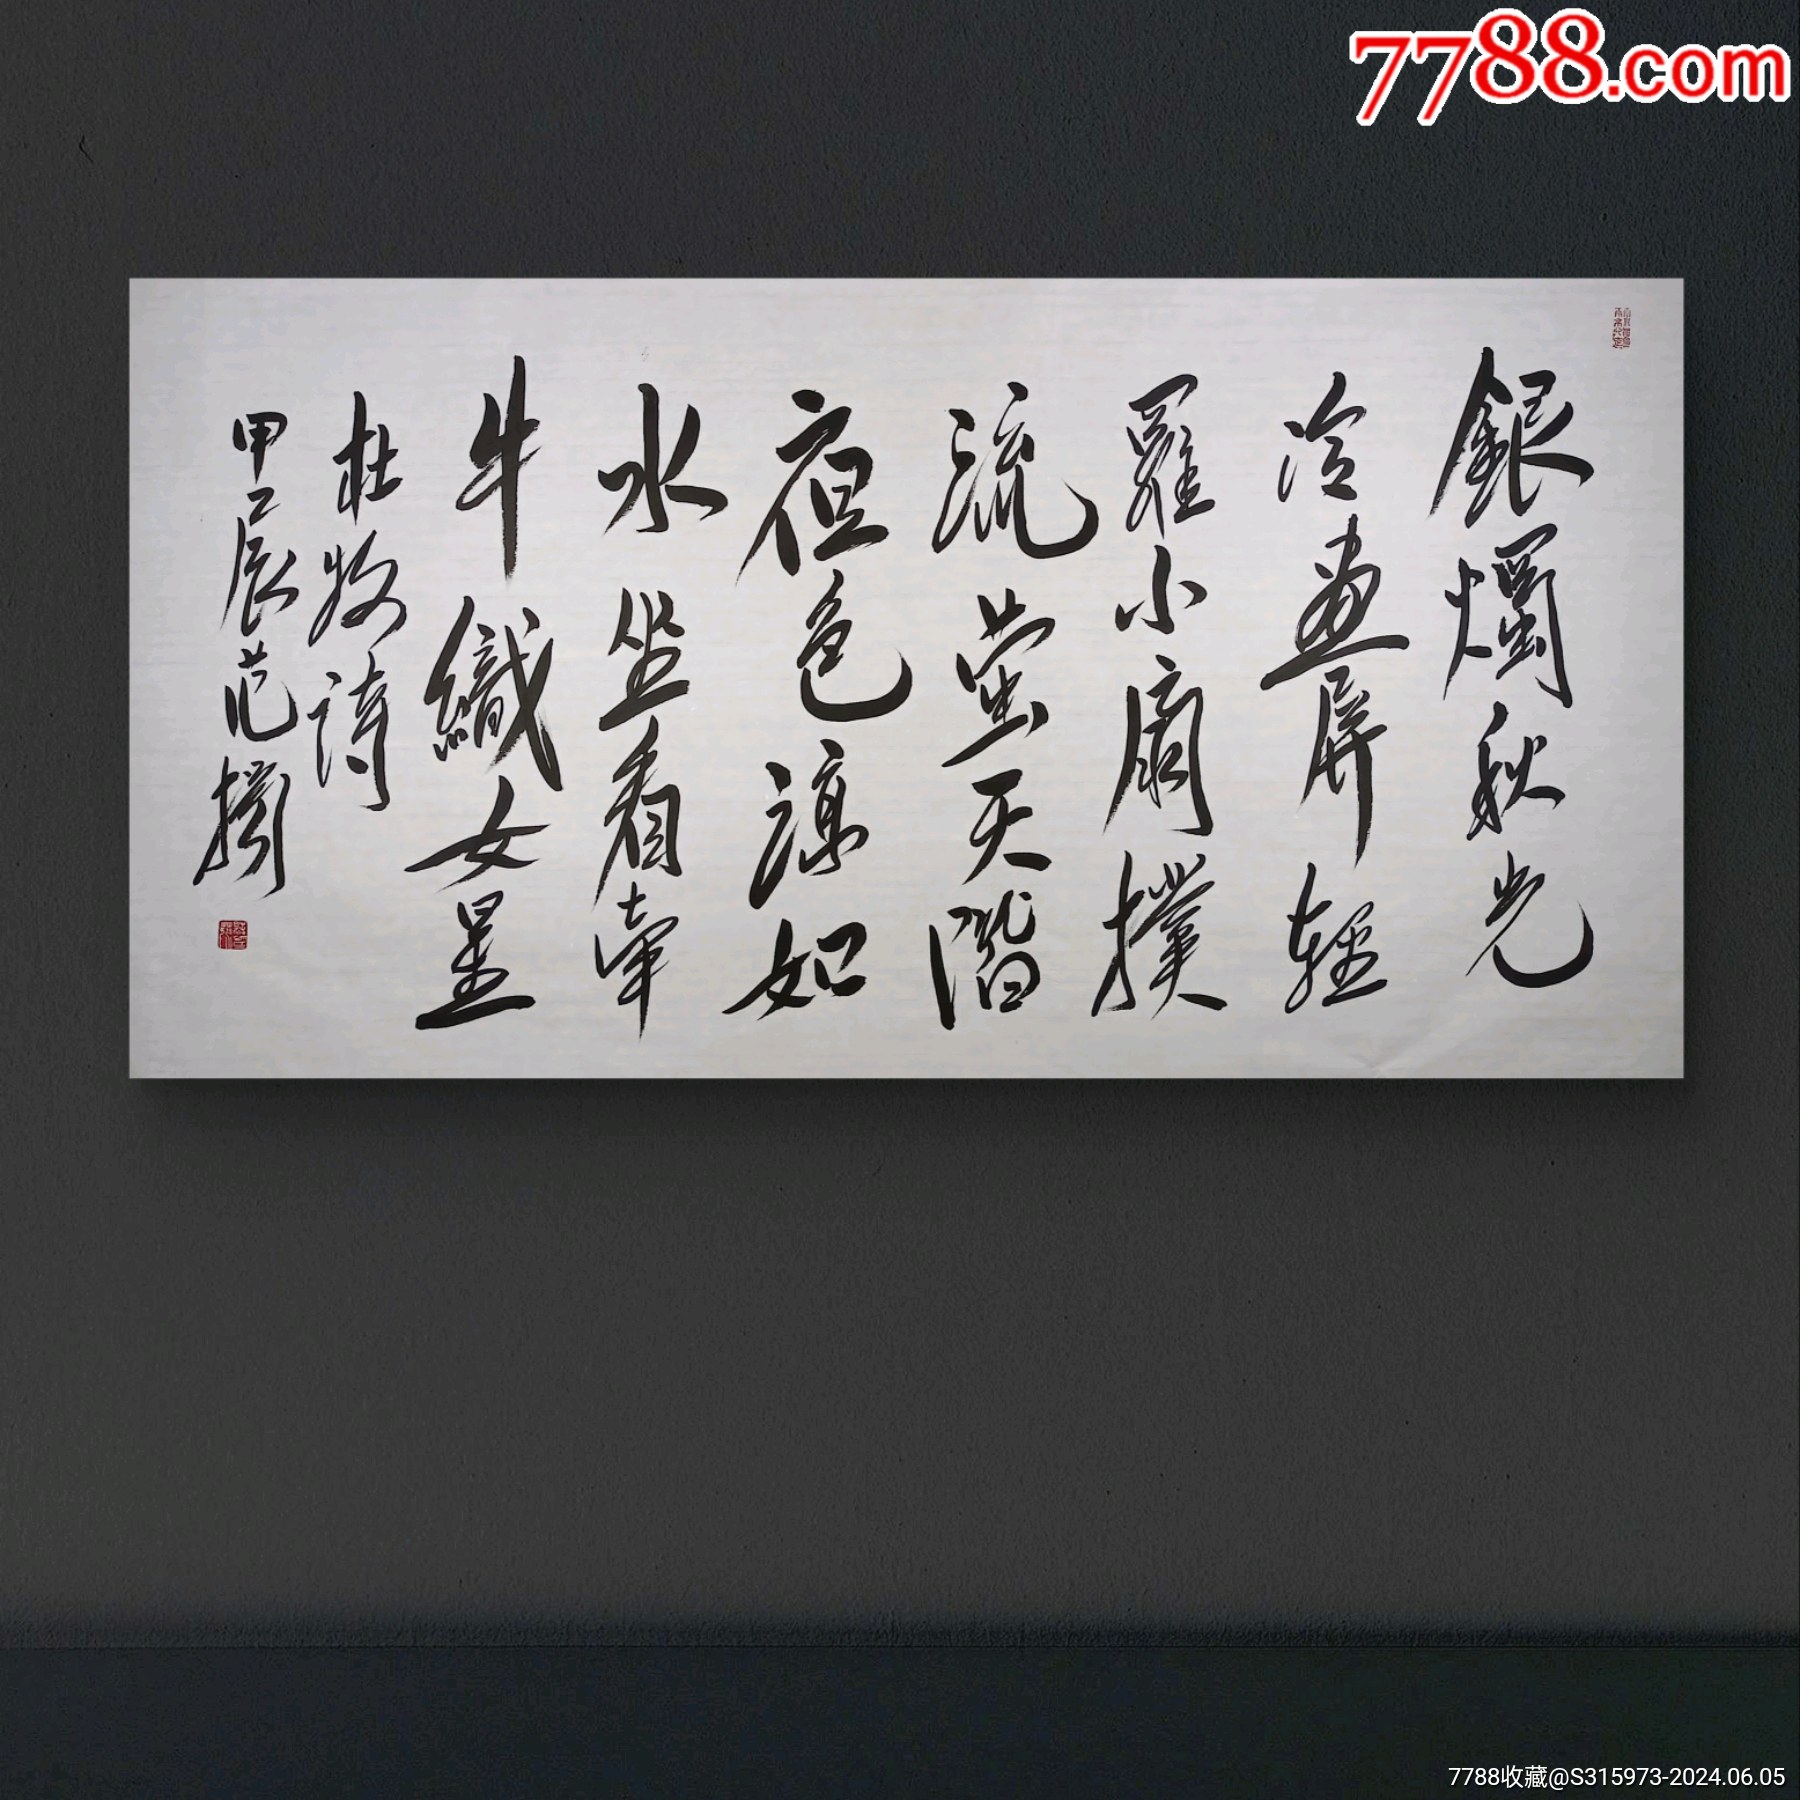 7788.com
銀燭秋光
冷畫屏輕
羅小扇撲
流萤天階
夜色涼如
水坐看牽
牛織女星
杜牧詩
甲辰范
7788收藏@S315973-2024.06.05